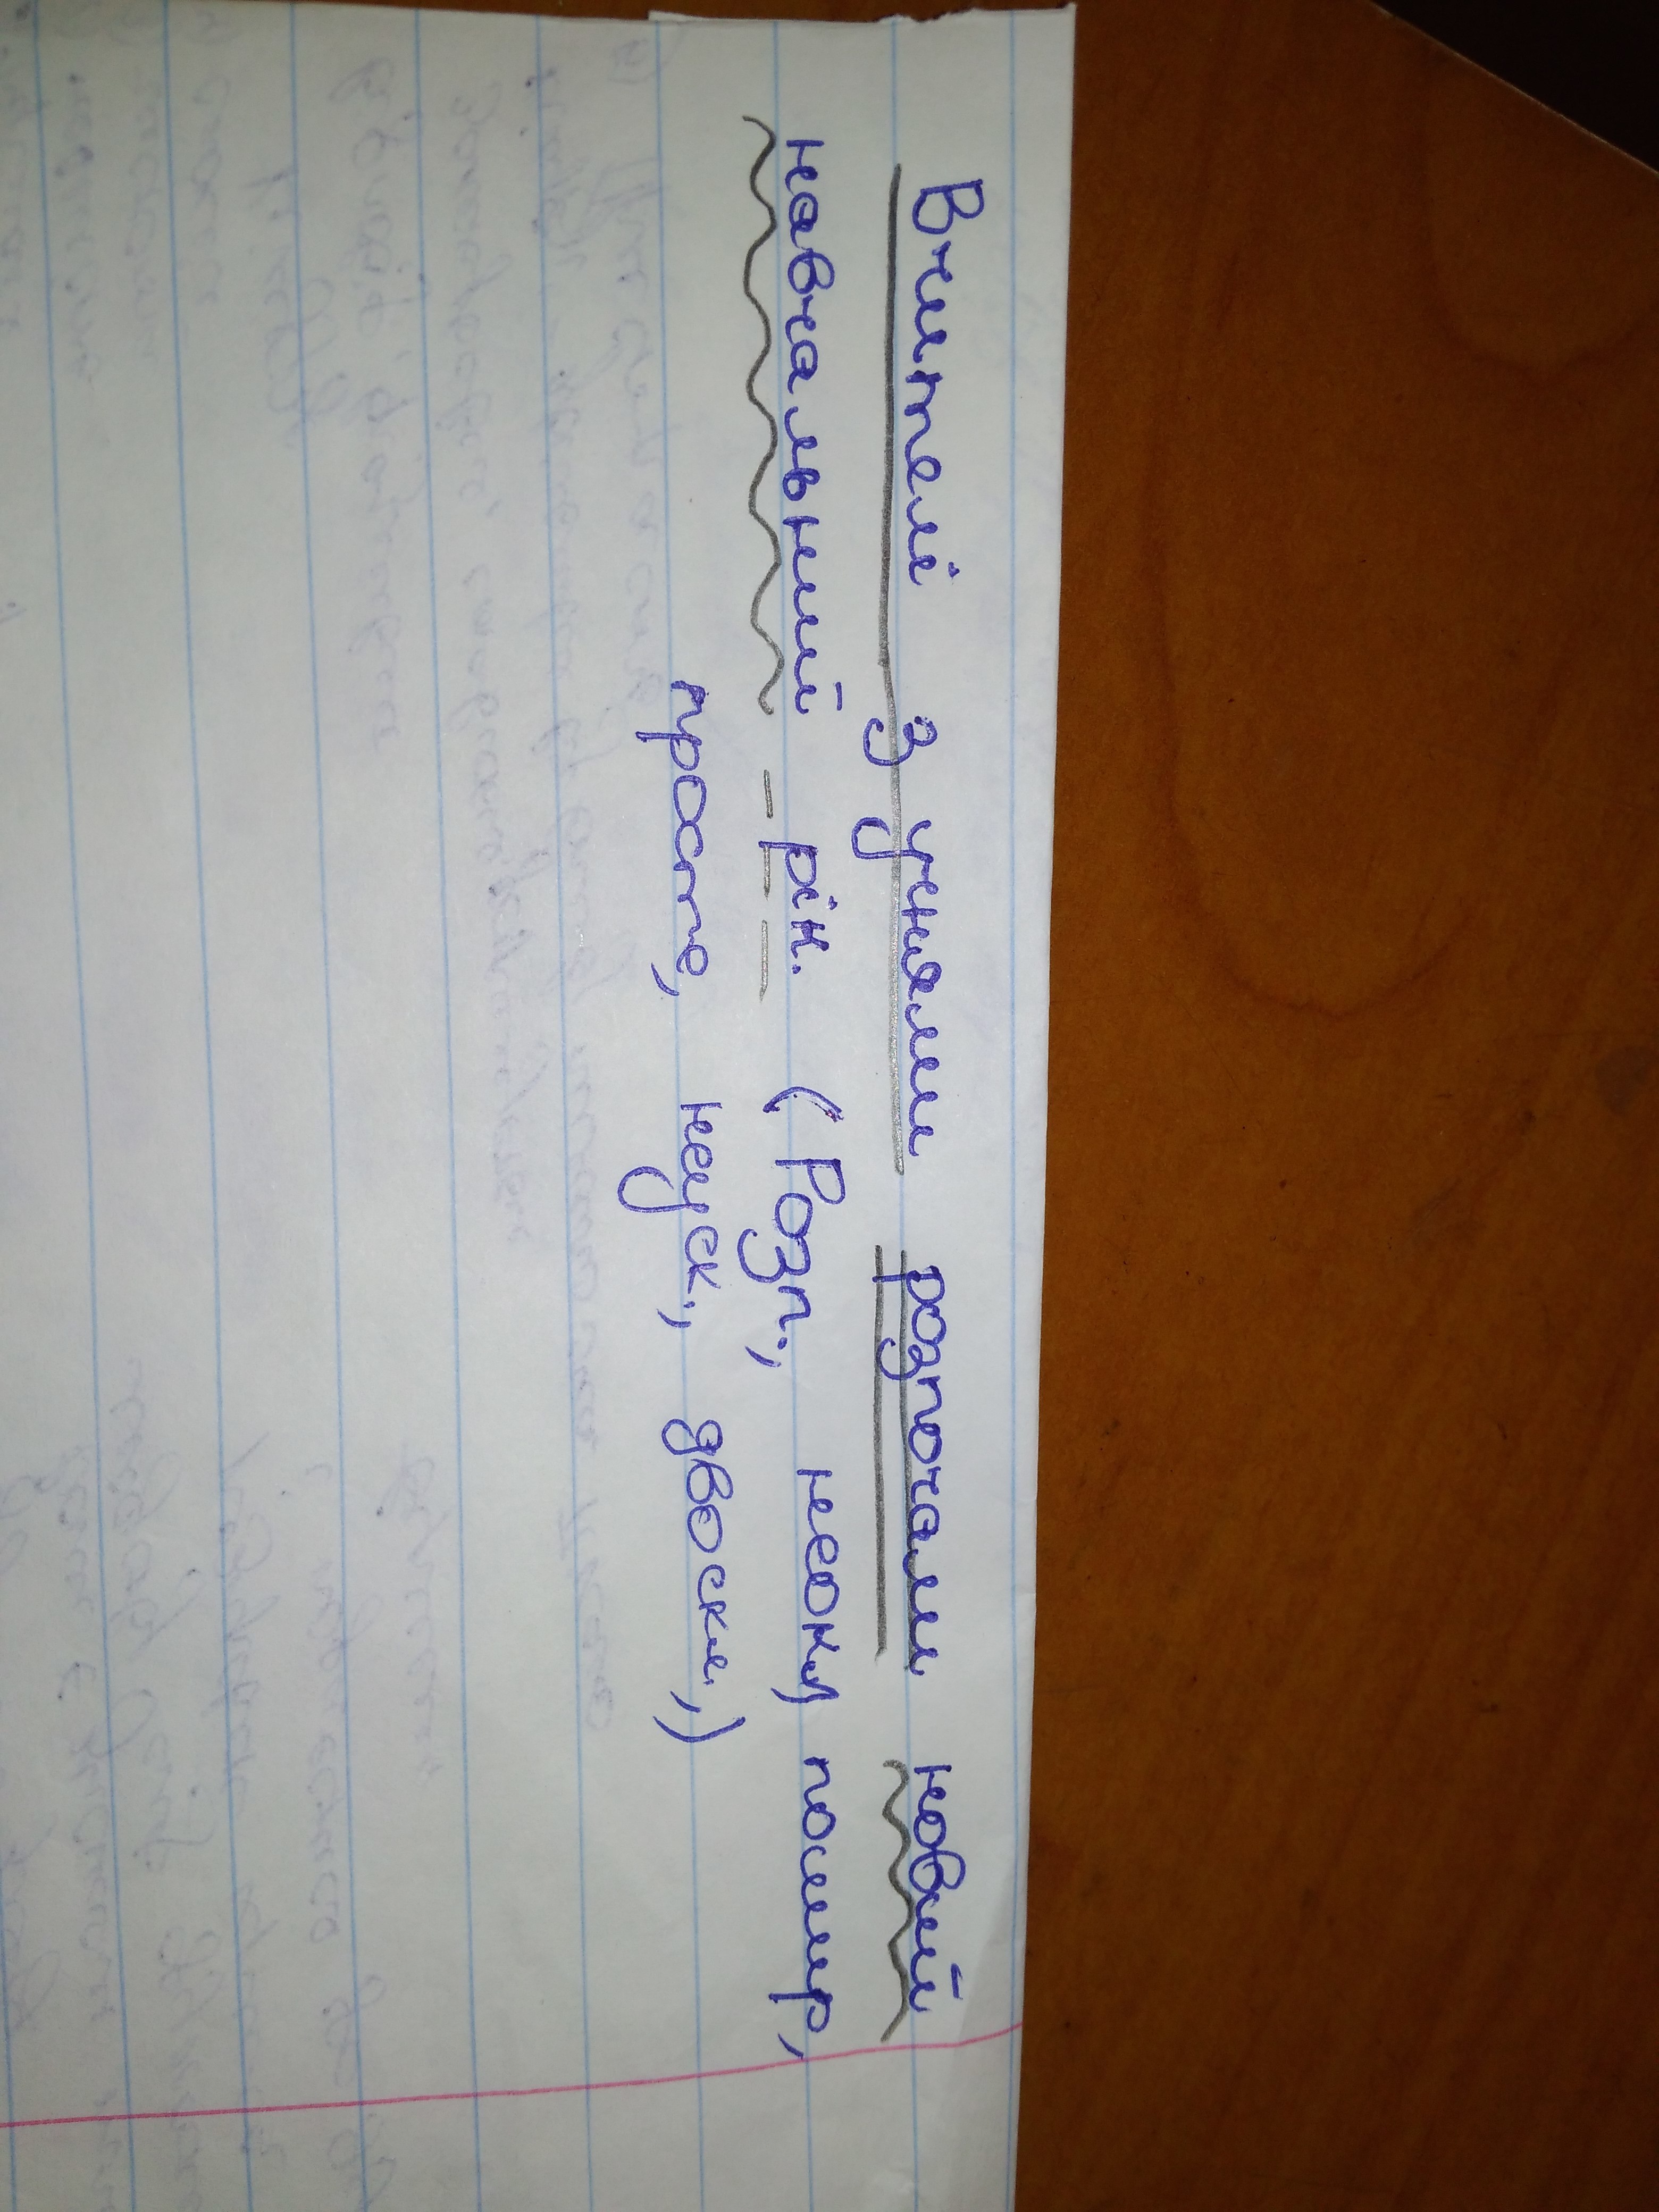 Вчителі з учнями розпочали новий
навчальний рік. (Розп., неокл, пошир,
просте, неуск., двоскл.,)